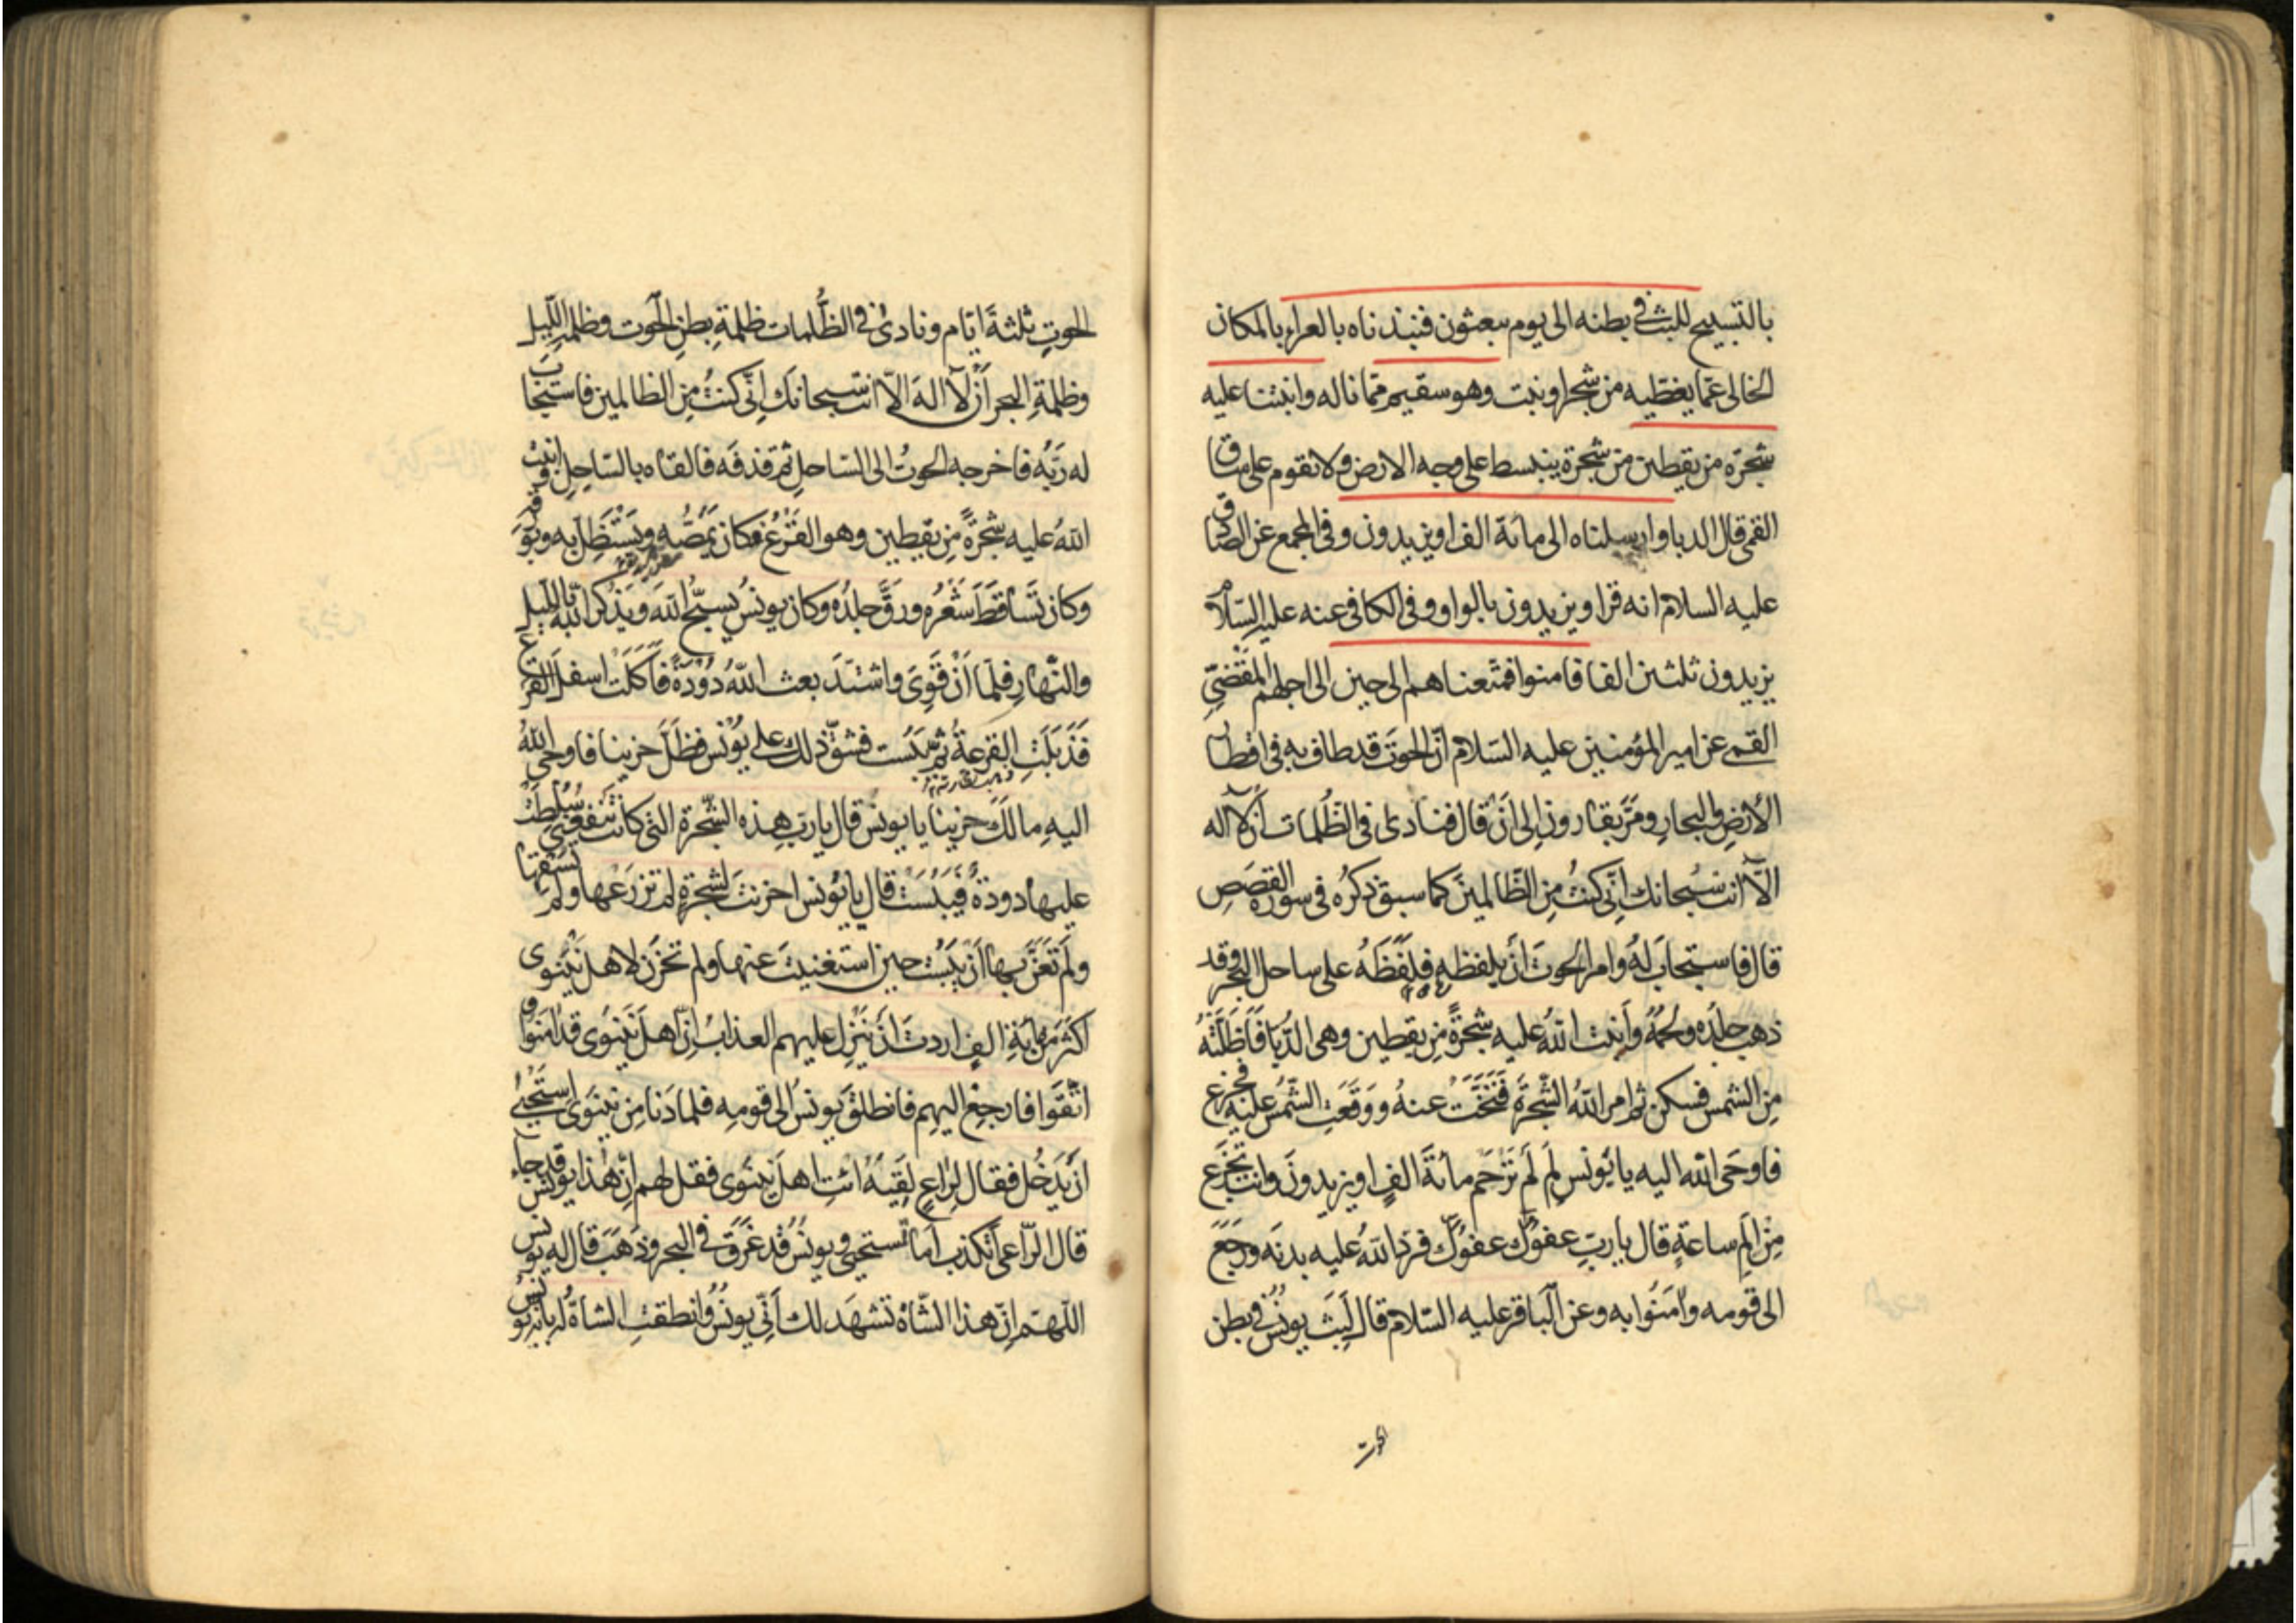 بالتسبيح للبث في بطنه الى يوم يبعثون فنبذناه بالعراء بالمكان
الخالى عمّا يغطّيه من شجر او نبت وهو سقيم ممّا ناله وانبتنا عليه
شجرة من يقطين من شجرة ينبسط على وجه الارض ولا تقوم على ساق
القمى قال الدبا وارسلناه الى مائة الف او يزيدون وفى المجمع عن الصادق
عليه السلام انه قرا ويزيدون بالواو وفى الكافى عنه عليه السّلام
يزيدون ثلثين الفا فامنوا فمتّعناهم الى حين الى اجلهم المقضىّ
القمى عن امير المؤمنين عليه السّلام انّ الحوتَ قد طاف به فى اقطار
الأرضِ والبحارِ ومرّ بقارون الى ان قال فنادى فى الظّلمات أن لآ اله
الّآ انت سُبحانك انّى كنتُ مِن الظّالمينَ كما سبق ذكرُه فى سورة القصَصِ
قال فاستجابَ لهُ وامر الحوتَ أن يلفظه فلَفَظَهُ على ساحل البحر وقد
ذهب جلدُه ولحمُهُ وأنبت اللهُ عليه شجرةً مِن يقطين وهى الدّبا فَاَظلّتْهُ
مِن الشمس فسكن ثم امر اللهُ الشّجرَةَ فَتَنَحَّتْ عنهُ ووَقَعَتِ الشّمسُ عليه فجزع
فاوحَى الله اليه يا يُونس لِمَ لَم تَرْحَم مائةَ الفٍ او يزيدونَ وانت تجزع
مِنْ اَلَمِ ساعةٍ قال يا ربّ عفوَك عفوَك فردّ اللهُ عليه بدنَه ورجَعَ
الى قومه وآمَنُوا به وعن الباقر عليه السّلام قال لَبِثَ يونُسُ فى بطن
الحوت
الحوتِ ثلثةَ ايّام ونادىٰ فى الظُّلمات ظلمةِ بطنِ الحوت وظلمةِ اللّيل
وظلمةِ البحر أنْ لآ الهَ الّآ انت سبحانكَ اِنّى كنتُ مِنَ الظالمين فاستجاب
له ربّهُ فاخرجه الحوتُ الى السّاحل ثم قذفَه فالقاه بالسّاحِلِ وانبتَ
اللهُ عليه شجرَةً مِن يقطين وهو القَرْعُ فكان يَمُصُّه ويَسْتَظِلّ به وبورقه
وكان تَساقَطَ شَعْرُه ورَقَّ جلدُه وكان يونسُ يُسبّحُ اللهَ ويَذْكُر اللهَ بالليل
والنّهارِ فلمّا أنْ قَوِىَ واشتدّ بعث اللهُ دُودَةً فَاَكَلَتْ اسفلَ القرع
فَذَبَلَتِ القرعةُ ثم يَبِسَت فشقّ ذلك على يُونُسَ فظَلّ حزينا فاوحى اللهُ
اليهِ مالَكَ حزينا يا يونس قال يا ربّ هذه الشّجرة التى كانت تَنفعُنى سَلّطتَ
عليها دودةً فيَبُسَتْ قال يا يُونس احزنتَ لشجرةٍ لم تزرَعها ولم تَسقِها
ولم تَعْنَ بها أنْ يَبُسَت حين استغنيتَ عنها ولم تحزن لاهل نَيْنَوى
اكثرَ مِن مائةِ الفٍ اردتَ ان يَنْزِل عليهم العذابُ اِنّ اهلَ نَيْنَوى قد آمنوا و
اتّقَوا فارجع اليهِم فانطلقَ يونسُ الى قومِه فلما دَنا مِن نينَوى استَحْيى
ان يَدخُل فقال لِراعٍ لَقِيَهُ ائتِ اهل نينَوى فقل لهم اِنّ هذا يونسُ قد جاء
قال الرّاعى أتكذب اما تستحيى ويونُسُ قد غَرِقَ فى البحر وذَهَبَ قال له يونس
اللّهمّ اِنّ هذا الشّاةَ تشهَد لك أنّى يونُسُ وانطقتِ الشاةُ له بانه يونس